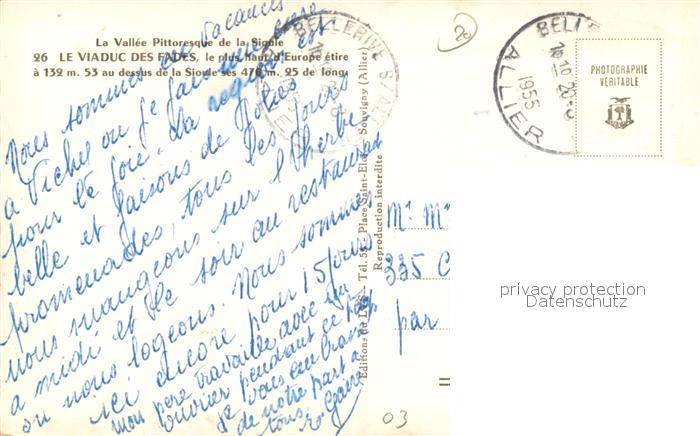 La Vallée Pittoresque de la Sioule
26 LE VIADUC DES FADES, le plus haut d'Europe étire
à 132 m. 53 au dessus de la Sioule ses 470 m. 25 de long
Nous sommes en vacances
à Vichy ou je
pour le foie. La région est
belle et faisons de jolies
promenades, tous les jours
nous mangeons sur l'herbe
à midi et le soir au restaurant
ou nous logeons. Nous sommes
ici encore pour 15 jours
mon père travaille avec un
ouvrier pendant ce temps
Je vous embrasse
de notre part à
tous.
Editions du Lys, Tél. 55, Place Saint-Eloi, Souvigny (Allier)
Reproduction interdite
BELLERIVE S/ALLIER
BELLE
10-10
20-8
1955
ALLIER
PHOTOGRAPHIE
VÉRITABLE
Mr Mm
335 C
par
privacy protection
Datenschutz
03